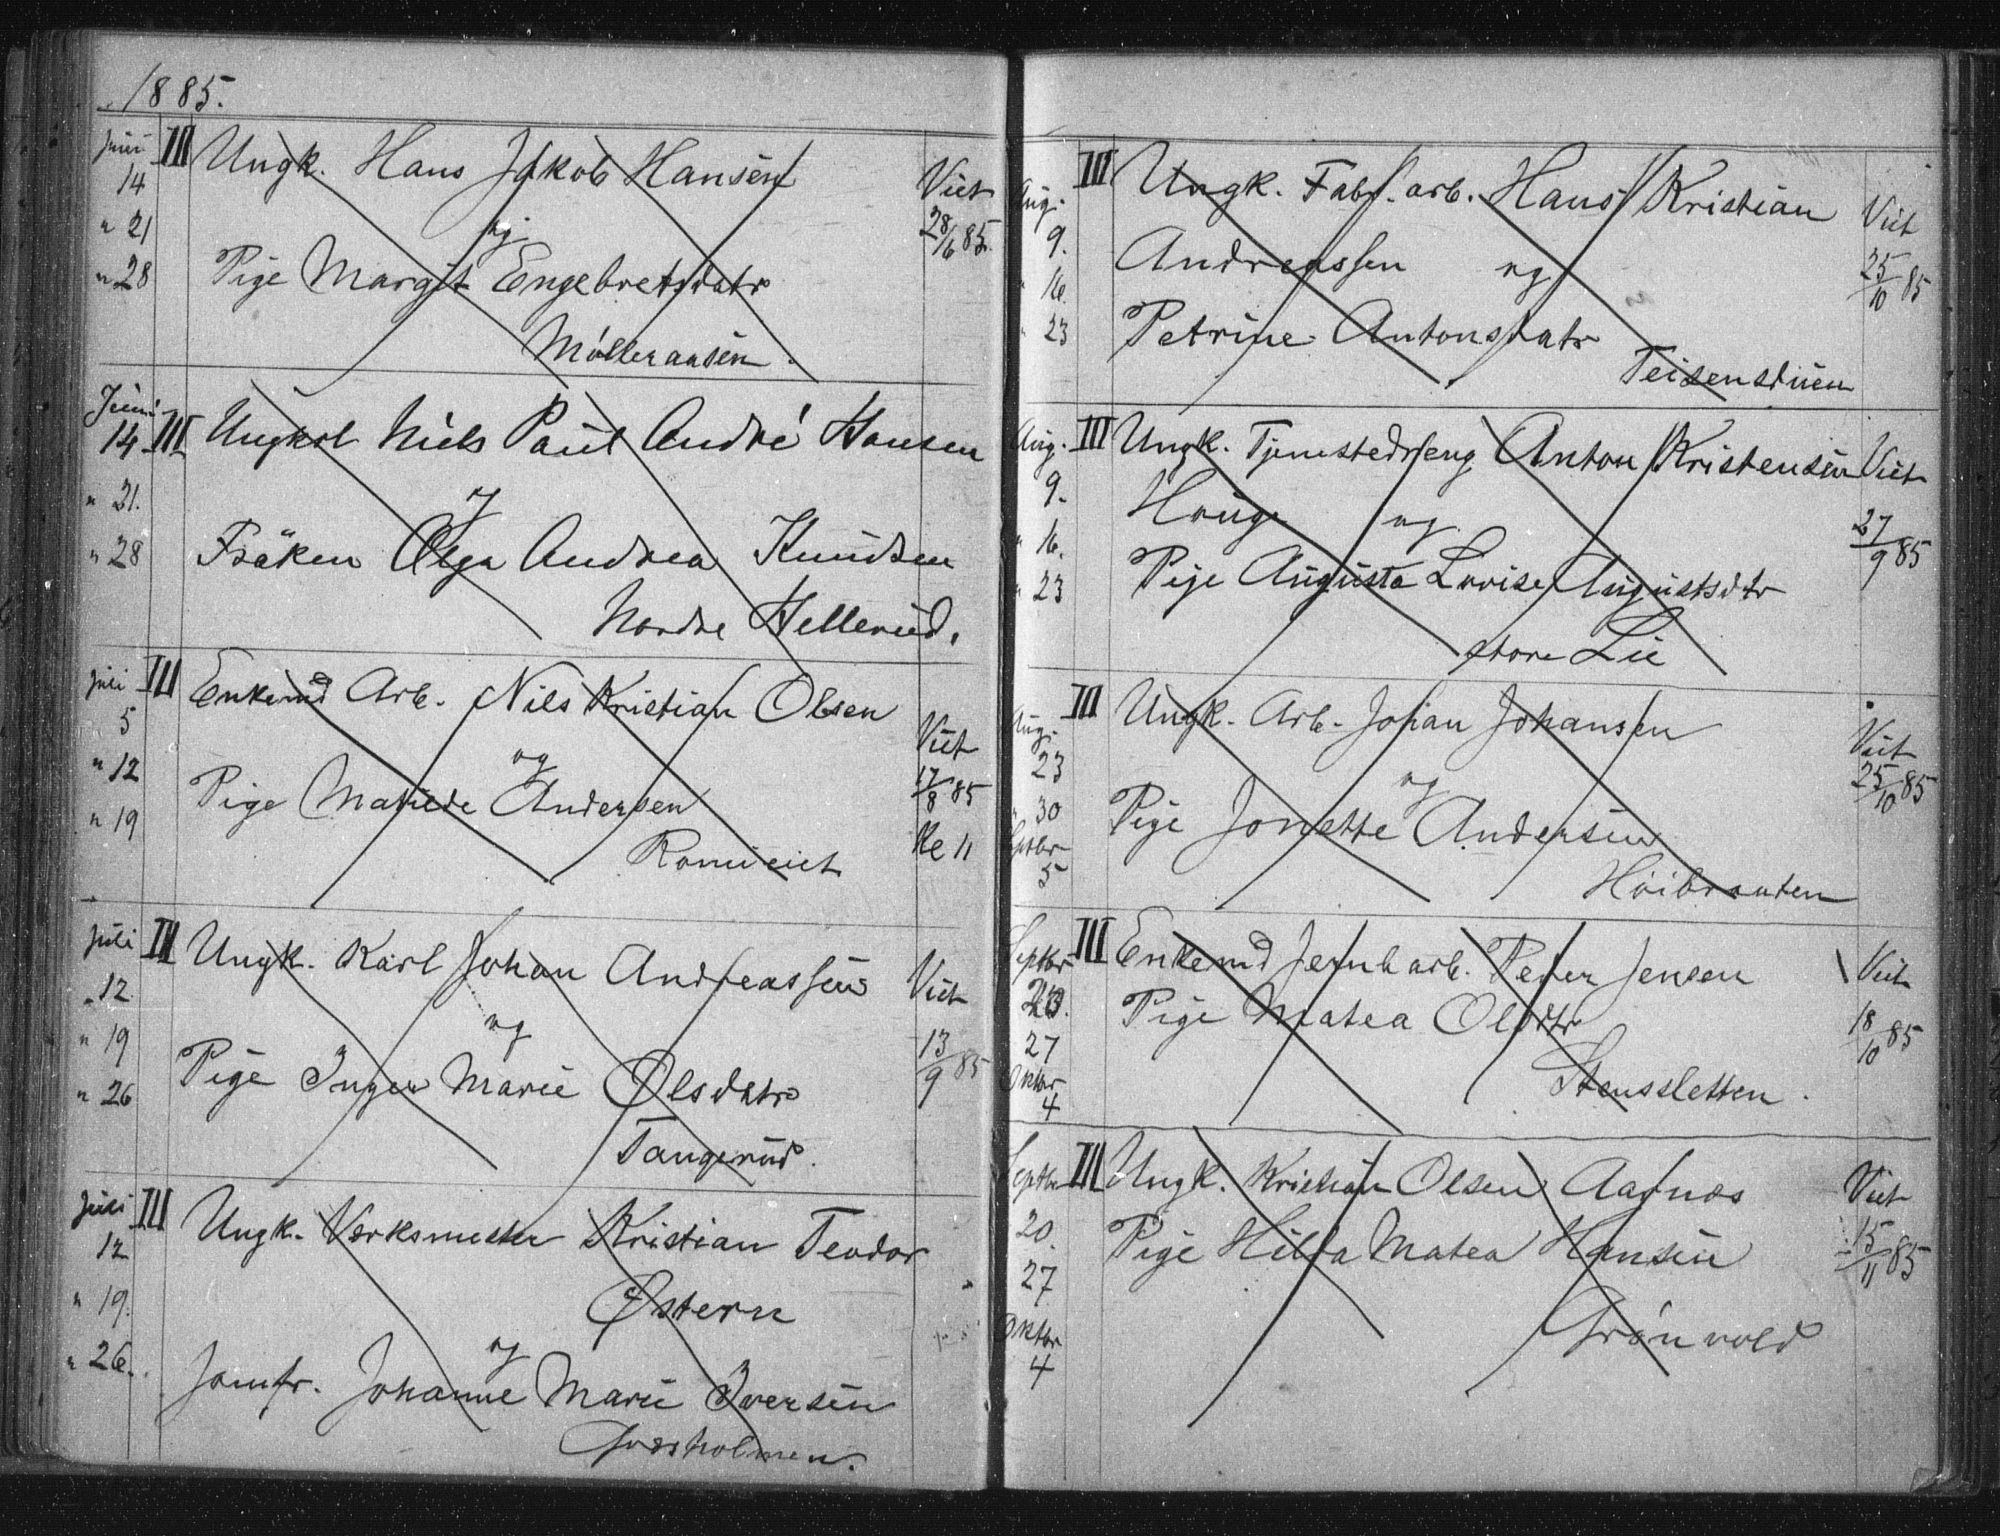 1885.
Juni III Ungk. Hans Jakob Hansen
14 og Viet
" 21 28/6 85.
" 28 Pige Margit Engebretsdatr
Mölleraasen.
Juni
14 III Ungkrl Niels Paul André Hansen
" 21. og
" 28 Fröken Olga Andrea Knudsen
Nordre Hellerud.
Juli III Enkemd Arb. Nils Kristian Olsen
5 og Viet
" 12 Pige Matilde Andersen 17/8 85
" 19 Kl 11
Juli III Ungk. Karl Johan Andreassen Viet
" 12 og
" 19 Pige Inger Marie Olsdatr 13/9 85
" 26 Tangerud.
Juli III Ungk. Værksmester Kristian Teodor
12 Østern
" 19. og
" 26. Jomfr. Johanne Marie Iversen
Græsholmen.
III Ungk. Fabr. arb. Hans Kristian Viet
Aug. Andreassen og 25/10 85
9.
" 16. Petrine Antonsdatr
" 23 Teisenstuen
Aug. III Ungk. Tjenestedreng Anton Kristensen Viet
9. Haug og 27/9 85
" 16. Pige Augusta Lovise Augustsdtr
" 23 store Lie
Aug. III Ungk. Arb. Johan Johansen Viet
23 og 25/10 85
" 30 Pige Jonette Andersen
Septbr
5 Höibraaten
Septbr III Enkemd Jernb arb. Peder Jensen Viet
20. Pige Matea Olsdtr 18/10 85
27
Oktbr Stensletten.
4
Septbr III Ungk. Kristian Olsen Aanæs Viet
20. Pige Hilda Matea Hansen 15/11 85
27
Oktbr Grönvold
4